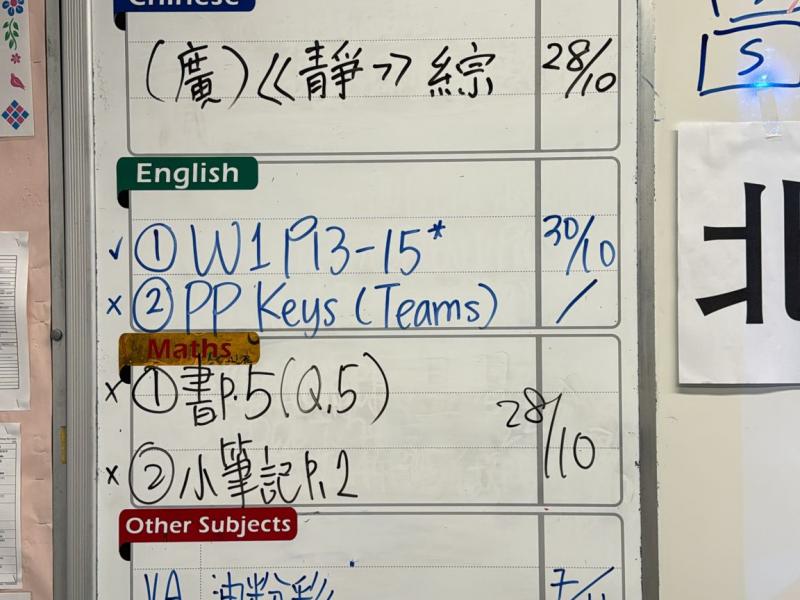 Chinese
(廣)《靜》綜 28/10
English
✓ ① W1 P13-15* 30/10
x ② PP Keys (Teams) /
Maths
x ① 書p.5(Q.5)
28/10
x ② 小筆記p.2
Other Subjects
VA 油粉彩 7/11
S
北